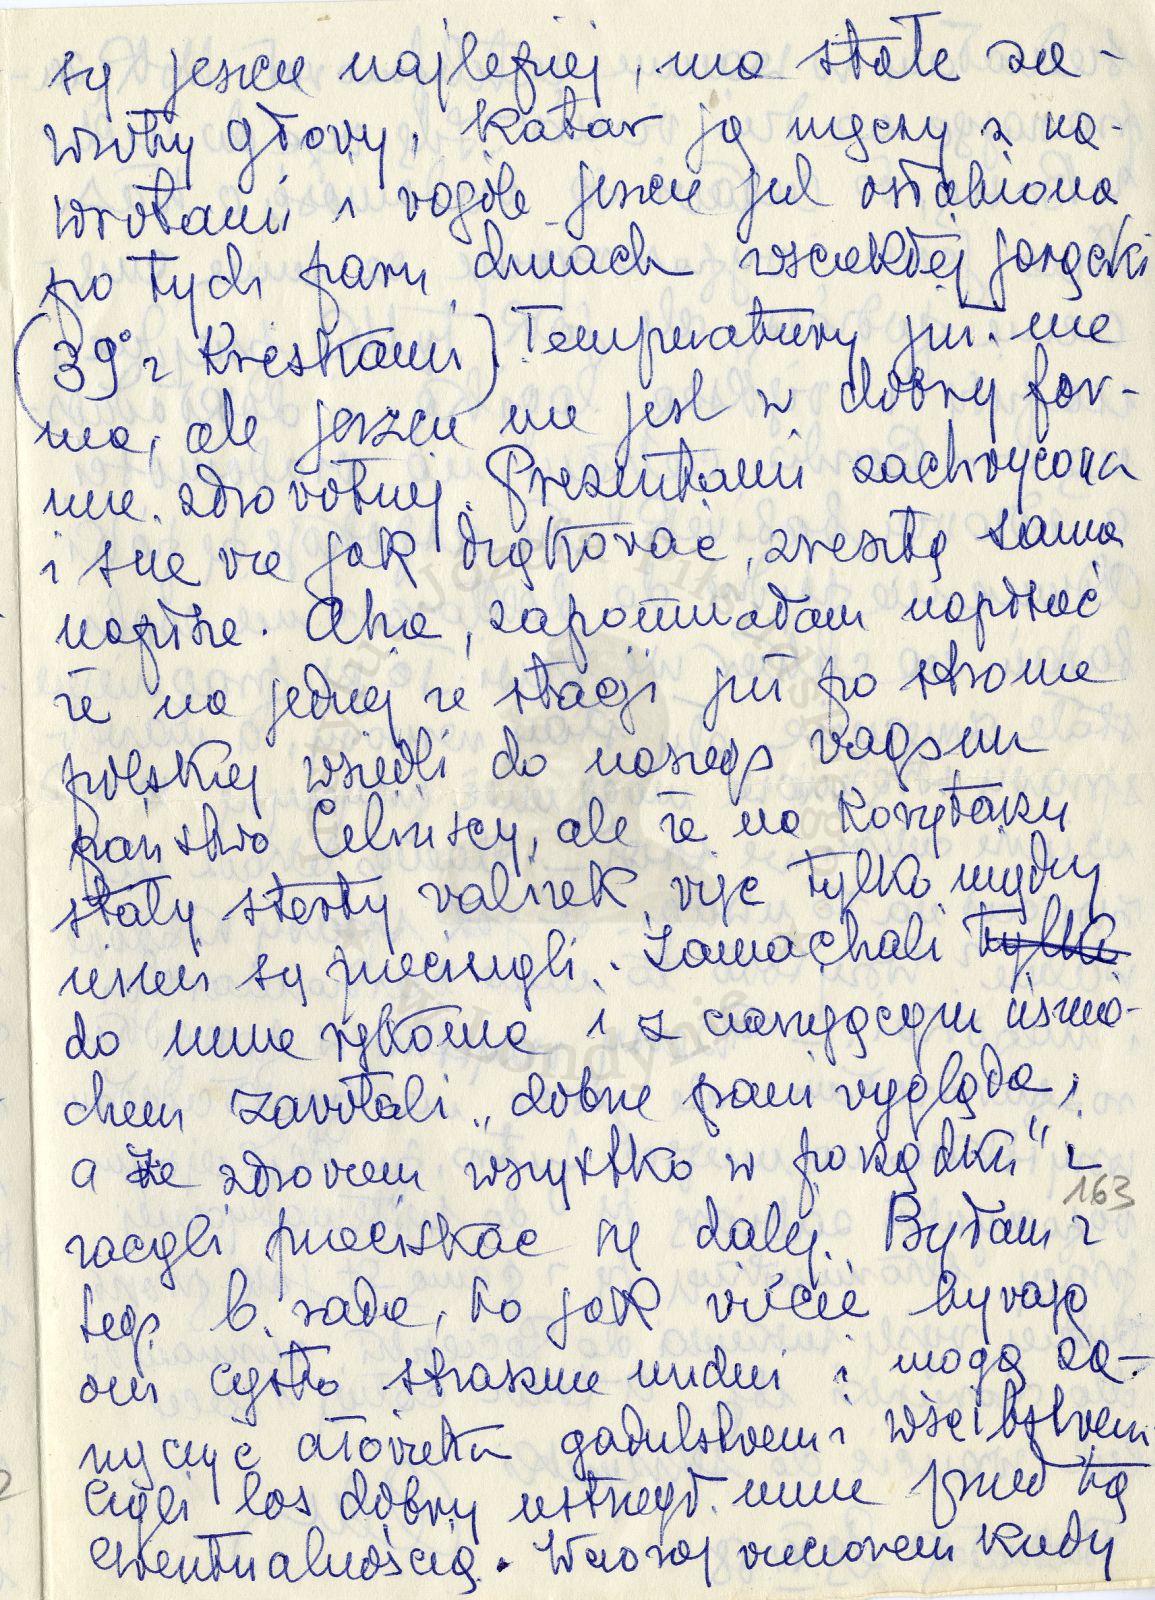 się jeszcze najlepiej, ma stałe za-
wroty głowy, katar ją męczy z na-
wrotami i wogóle jeszcze jest osłabiona
po tych paru dniach wściekłej gorączki
(39° z kreskami). Temperatury już nie
ma, ale jeszcze nie jest w dobrej for-
mie zdrowotnej. Prezentami zachwycona
i nie wie jak dziękować, zresztą sama
napisze. Aha, zapomniałam napisać
że na jednej ze stacji już po stronie
polskiej wsiedli do naszego wagonu
państwo Celinscy, ale że na korytarzu
stały sterty walizek, więc tylko między
nimi się przeciągli. Zamachali tylko
do mnie rękoma i z czarującym uśmie-
chem zawołali „dobrze pani wygląda,
a ze zdrowiem wszystko w porządku" i
zaczęli przeciskać się dalej. Byłam z
tego b. rada, bo jak wiecie bywają
oni często strasznie nudni i mogą za-
męczyć człowieka gadulstwem i wścibstwem
Czyli los dobry ustrzegł mnie przed tą
ewentualnością. Wczoraj wieczorem kiedy
163